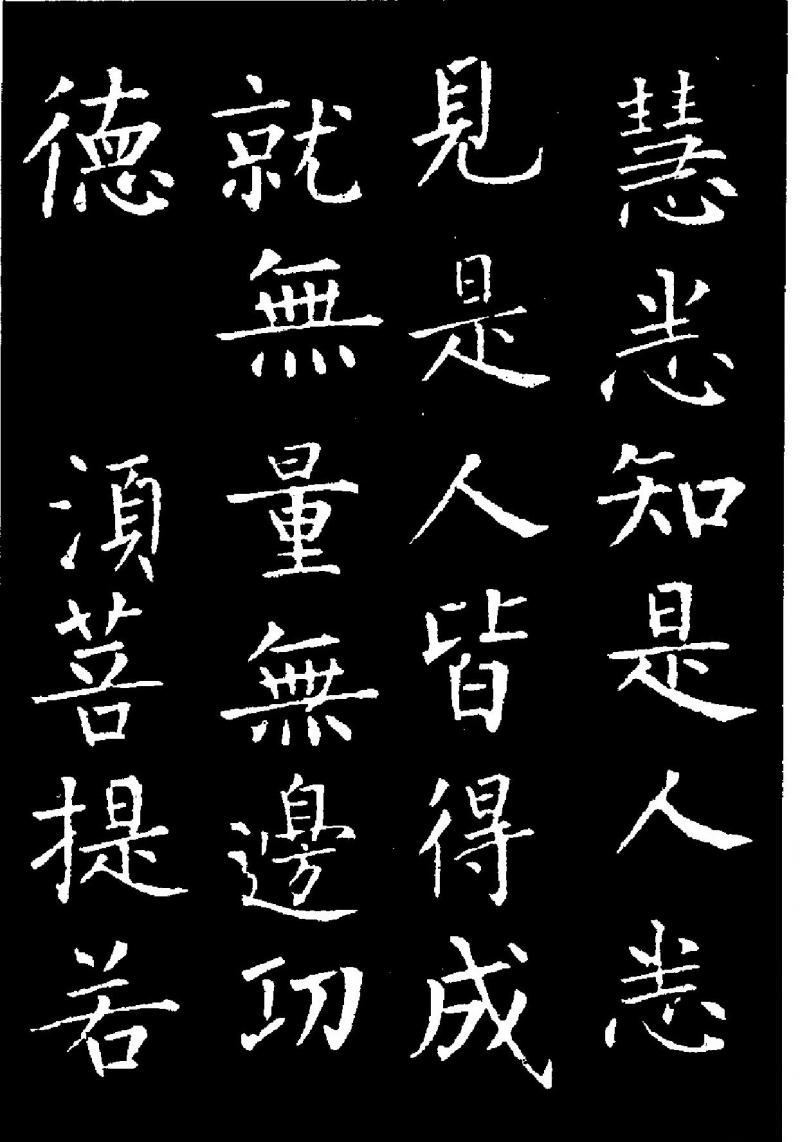 慧悉知是人悉
見是人皆得成
就無量無邊功
德 須菩提若